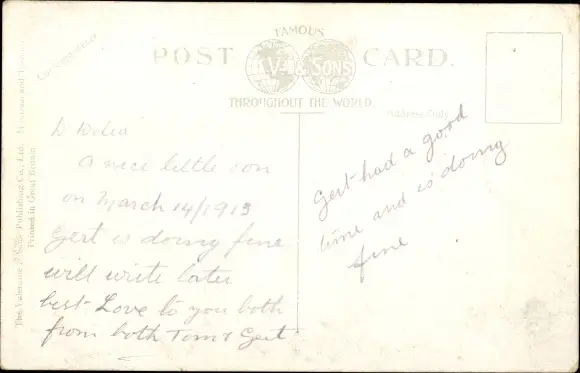 FAMOUS
POST CARD.
V & SONS
THROUGHOUT THE WORLD.
Correspondence
Address Only.
D Delia
A nice little son
on March 14/1913
Gert is doing fine
will write later
best Love to you both
from both Tom & Gert
Gert had a good
time and is doing
fine
The Valentine & Sons Publishing Co., Ltd.
Printed in Great Britain